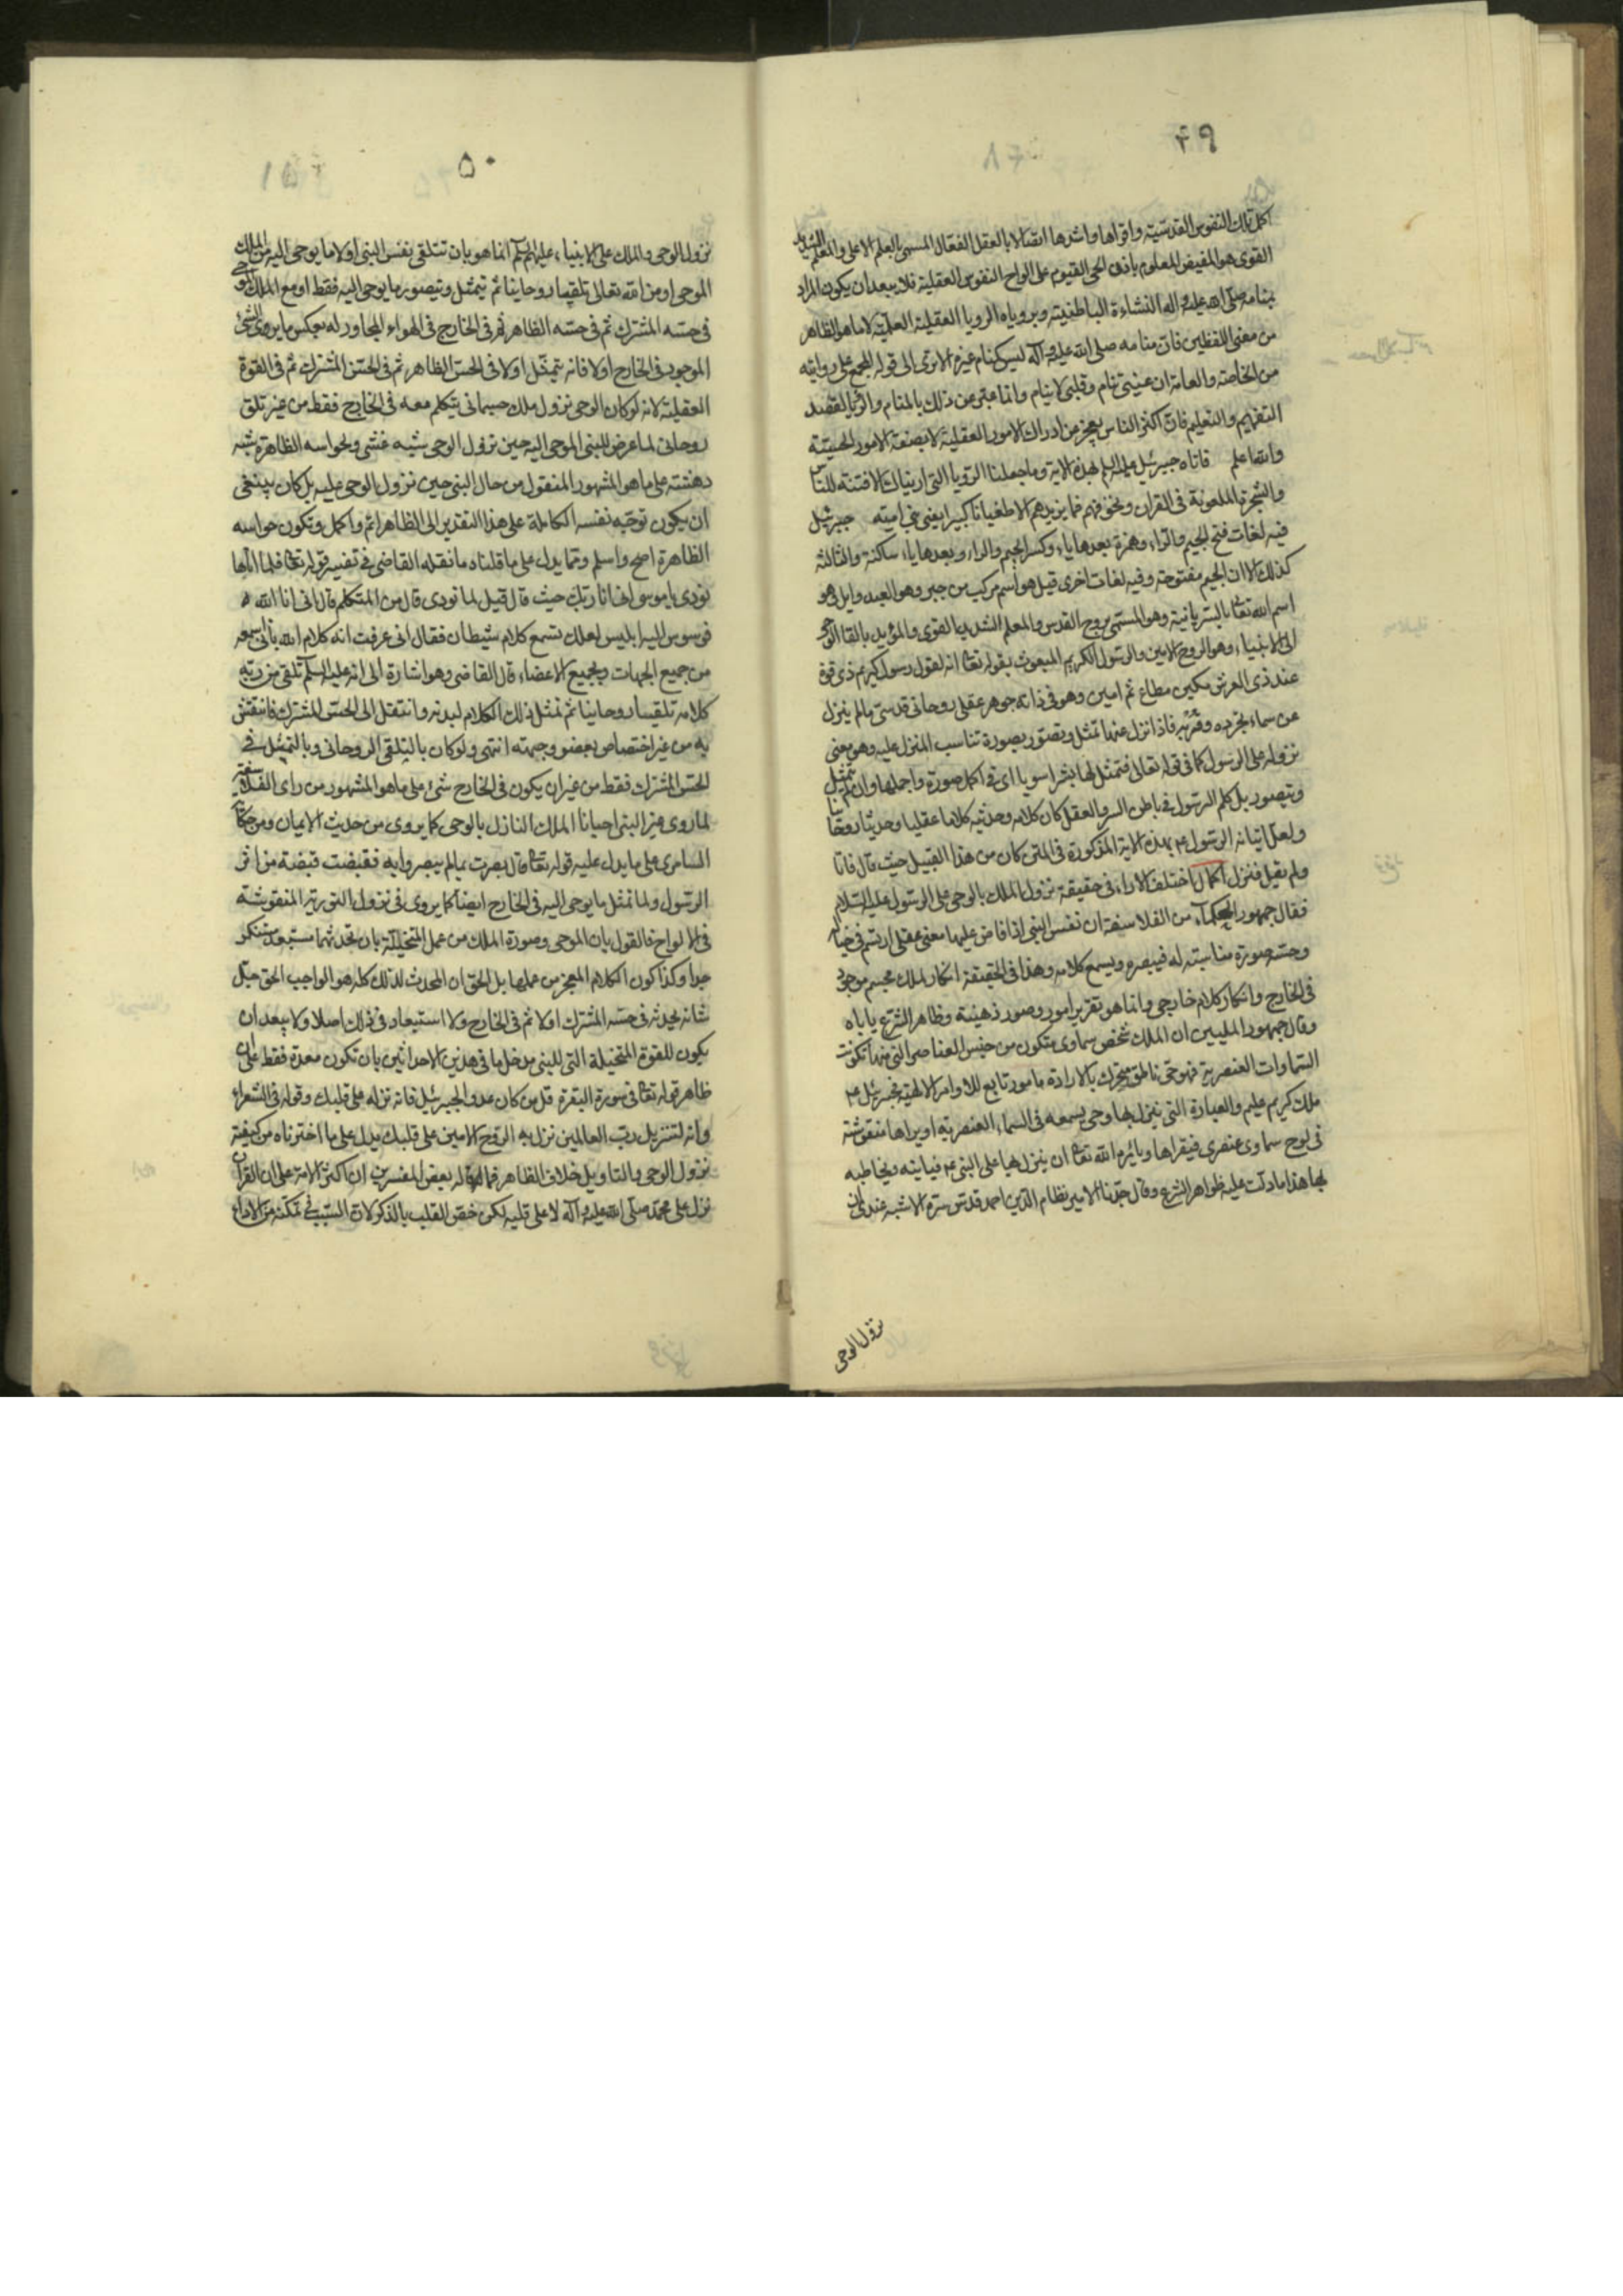 ٤٩
اكمل تلك النفوس القدسية واقواها واشدها اتصالا بالعقل الفعال المسمى بالعلم الاعلى والمعلم الشديد
القوى هو المفيض للعلوم باذن الحى القيوم على الواح النفوس العقلية فلا يبعد ان يكون المراد
بمنامه صلى الله عليه واله النشاءة الباطنية وبروياه الرويا العقلية العلمية لا ما هو الظاهر
من معنى اللفظين فان منامه صلى الله عليه وآله ليس كمنام غيره الا ترى الى قوله المجمع على روايته
من الخاصة والعامة ان عينى تنام وقلبى لا ينام وانما عبر عن ذلك بالمنام والرؤيا لقصد
التفهيم والتعليم فان اكثر الناس يعجز من ادراك الامور العقلية لا بصفة الامور الحسية
والله اعلم فاتاه جبرئيل عليه السلم بهذه الاية وما جعلنا الرويا التى اريناك الا فتنة للناس
والشجرة الملعونة فى القران ونخوفهم فما يزيدهم الا طغيانا كبيرا يعنى بنى امية جبرئيل
فيه لغات فتح الجيم والراء وهمزة بعدها ياء وكسر الجيم والراء وبعدها ياء ساكنة والثالثة
كذلك الا ان الجيم مفتوحة وفيه لغات اخرى قيل هو اسم مركب من جبر وهو العبد وايل هو
اسم الله تعا بالسريانية وهو المسمى بروح القدس والمعلم الشديد القوى والمؤيد بالقاء الوحى
الى الانبياء وهو الروح الامين والرسول الكريم المبعوث بقوله تعا انه لقول رسول كريم ذى قوة
عند ذى العرش مكين مطاع ثم امين وهو فى ذاته جوهر عقلى روحانى قدسى ما لم ينزل
عن سماء تجرده وقربه فاذا نزل عنها تمثل وتصور بصورة تناسب المنزل عليه وهو معنى
نزوله على الرسول كما فى قوله تعالى فتمثل لها بشرا سويا اى فى اكمل صورة واجملها وان لم يتمثل
ويتصور بل كلم الرسول فى باطن السر والعقل كان كلامه وحديثه كلاما عقليا وحديثا روحانيا
ولعل اتيانه الرسول ع م بهذه الاية المذكورة فى المتن كان من هذا القبيل حيث قال فاتا
ولم يقل فنزل اكمال اختلف الاراء فى حقيقة نزول الملك بالوحى على الرسول عليه السلام
فقال جمهور الحكماء من الفلاسفة ان نفس النبى اذا فاض عليها معنى عقلى ارتسم فى خياله
وحسه صورة مناسبة له فيبصره ويسمع كلامه وهذا فى الحقيقة انكار لملك مجسم موجود
فى الخارج وانكار كلام خارجى وانما هو تقرير امور وصور ذهنية وظاهر الشرع ياباه
وقال جمهور المليين ان الملك شخص سماوى متكون من جنس العناصر التى منها تكونت
السماوات العنصرية فهو حى ناطق متحرك بالارادة مامور تابع للاوامر الالهية فجبرئيل ع م
ملك كريم عليم والعبارة التى ينزل بها وحى يسمعه فى السماء العنصرية او يراها منقوشة
فى لوح سماوى عنصرى فيقراها ويامره الله تعا ان ينزل بها على النبى ع م فياتيه ويخاطبه
بها هذا ما دلت عليه ظواهر الشرع وقال جدنا الامير نظام الدين احمد قدس سره الاشبه عندى ان
نزول الوحى
٥٠
نزول الوحى والملك على الانبياء عليهم السلم انما هو بان تتلقى نفس النبى اولا ما يوحى اليه من الملك
الموحى او من الله تعالى تلقيا روحانيا ثم يتمثل ويتصور ما يوحى اليه فقط او مع الملك الموحى
فى حسه المشترك ثم فى حسه الظاهر ثم فى الخارج فى الهواء المجاور له بعكس ما يروى الشئ
الموجود فى الخارج اولا فانه يتمثل اولا فى الحس الظاهر ثم فى الحس المشترك ثم فى القوة
العقلية لانه لو كان الوحى نزول ملك جسمانى يتكلم معه فى الخارج فقط من غير تلق
روحانى لما عرض للنبى الموحى اليه حين نزول الوحى شبيه غشى ولحواسه الظاهرة شبه
دهشته على ما هو المشهور المنقول من حال النبى حين نزول الوحى عليه بل كان ينبغى
ان يكون توجه نفسه الكاملة على هذا التقدير الى الظاهر اتم واكمل وتكون حواسه
الظاهرة اصح واسلم ومما يدل على ما قلناه ما نقله القاضى فى تفسير قوله تعا فلما اتاها
نودى يا موسى انى انا ربك حيث قال قيل لما نودى قال من المتكلم قال انى انا الله
فوسوس اليه ابليس لعلك تسمع كلام شيطان فقال انى عرفت انه كلام الله بانى اسمعه
من جميع الجهات وبجميع الاعضاء قال القاضى وهو اشارة الى انه عليه السلم تلقى من ربه
كلامه تلقيا روحانيا ثم تمثل ذلك الكلام لبدنه وانتقل الى الحس المشترك فانتقش
به من غير اختصاص بعضو وجهة انتهى ولو كان بالتلقى الروحانى وبالتمثل فى
الحس المشترك فقط من غير ان يكون فى الخارج شئ على ما هو المشهور من راى الفلاسفة
لما روى غير النبى احيانا الملك النازل بالوحى كما يروى من حديث الايمان ومن حكاية
السامرى على ما يدل عليه قوله تعا قال بصرت بما لم يبصروا به فقبضت قبضة من اثر
الرسول ولما تمثل ما يوحى اليه فى الخارج ايضا كما يروى فى نزول التورية المنقوشة
فى الالواح فالقول بان الموحى وصورة الملك من عمل المتخيلة بان تحدثهما مستبعد مستنكر
جدا وكذا كون الكلام المعجز من عملها بل الحق ان المحدث لذلك كله هو الواجب الحق جل
شانه يحدثه فى حسه المشترك اولا ثم فى الخارج ولا استبعاد فى ذلك اصلا ولا يبعد ان
يكون للقوة المتخيلة التى للنبى مدخل ما فى هذين الاحداثين بان تكون معدة فقط على ان
ظاهر قوله تعا فى سورة البقرة قل من كان عدوا لجبرئيل فانه نزله على قلبك وقوله فى الشعراء
وانه لتنزيل رب العالمين نزل به الروح الامين على قلبك يدل على ما اخترناه من كيفية
نزول الوحى والتاويل خلاف الظاهر فما قاله بعض المفسرين ان اكثر الامة على ان القران
نزل على محمد صلى الله عليه وآله لا على قلبه لكن خص القلب بالذكر لان السبب فى تمكنه من الاداء